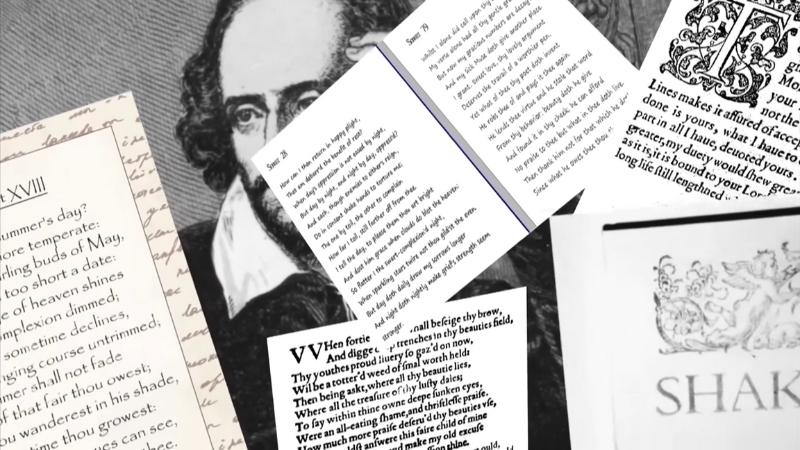 t XVIII
ummer's day?
ore temperate:
rling buds of May,
too short a date:
e of heaven shines
mplexion dimmed;
sometime declines,
nging course untrimmed;
mer shall not fade
f that fair thou owest;
ou wanderest in his shade,
time thou growest:
yes can see,
thee.
Sonnet 28
How can I then return in happy plight,
That am debarr'd the benefit of rest?
When day's oppression is not eased by night,
But day by night, and night by day, oppress'd?
And each, though enemies to either's reign,
Do in consent shake hands to torture me;
The one by toil, the other to complain
How far I toil, still farther off from thee.
I tell the day, to please them thou art bright
And dost him grace when clouds do blot the heaven:
So flatter I the swart-complexion'd night,
When sparkling stars twire not thou gild'st the even.
But day doth daily draw my sorrows longer
And night doth nightly make grief's strength seem
stronger.
Sonnet 79
Whilst I alone did call upon thy
My verse alone had all thy gentle gra
But now my gracious numbers are decay
And my sick Muse doth give another place.
I grant, sweet love, thy lovely argument
Deserves the travail of a worthier pen,
Yet what of thee thy poet doth invent
He robs thee of and pays it thee again.
He lends thee virtue and he stole that word
From thy behavior; beauty doth he give
And found it in thy cheek; he can afford
No praise to thee but what in thee doth live.
Then thank him not for that which he do
Since what he owes thee thou
T
gr
Mo
your
nor the
Lines makes it assured of accep
done is yours, what I haue to
part in all I haue, deuoted yours.
greater, my duety would shew grea
as it is, it is bound to your Lor
long life still lengthned w
VVHen fortie nall beseige thy brow,
And digge p trenches in thy beauties field,
Thy youthes proud liuery so gaz'd on now,
Wil be a totter'd weed of smal worth held:
Then being askt, where all thy beautie lies,
Where all the treasure of thy lusty daies;
To say within thine owne deepe sunken eyes,
Were an all-eating shame, and thriftlesse praise.
How much more praise deseru'd thy beauties vse,
ldst answere this faire child of mine
and make my old excuse
ssion thine.
ould,
SHAK